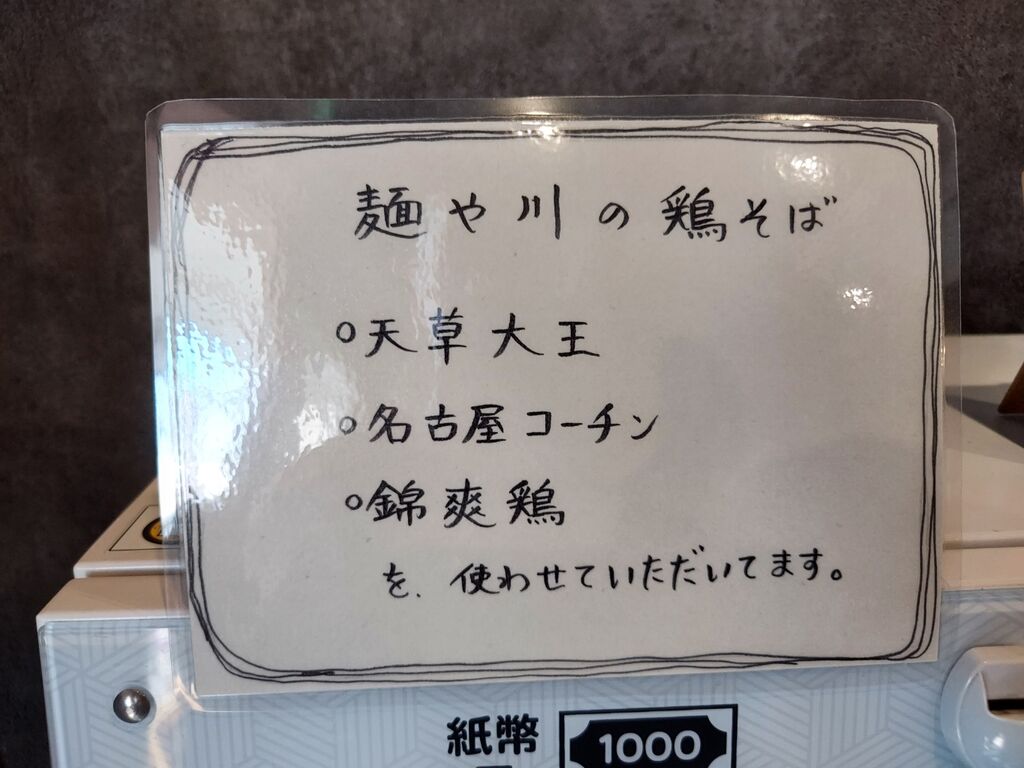 麺や川の鶏そば
○天草大王
○名古屋コーチン
○錦爽鶏
を、使わせていただいてます。
紙幣
1000